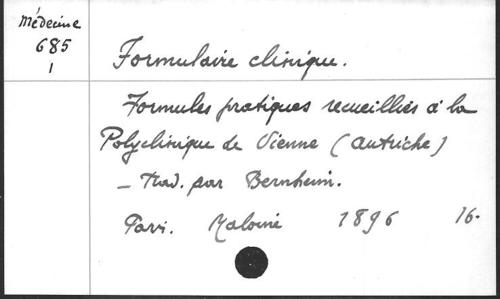 Médecine
685
1
Formulaire clinique.
Formules pratiques recueillies à la
Polyclinique de Vienne (Autriche)
– Trad. par Bernheim.
Pari. Maloine 1896 16-